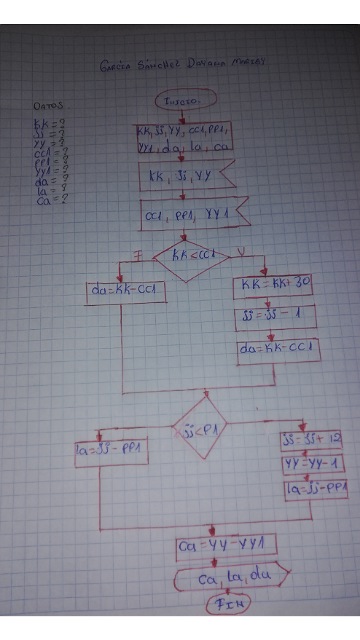 García Sánchez
DATOS
KK = ?
JJ = ?
YY = ?
CC1 = ?
PP1 = ?
YY1 = ?
da = ?
la = ?
ca = ?
Inicio.
KK, JJ, YY, CC1, PP1,
YY1, da, la, ca
KK, JJ, YY
CC1, PP1, YY1
KK < CC1
F
V
da = KK-CC1
KK = KK+30
JJ = JJ - 1
da = KK-CC1
JJ < P1
la = JJ - PP1
JJ = JJ + 12
YY = YY-1
la = JJ-PP1
ca = YY-YY1
ca, la, da
FIN